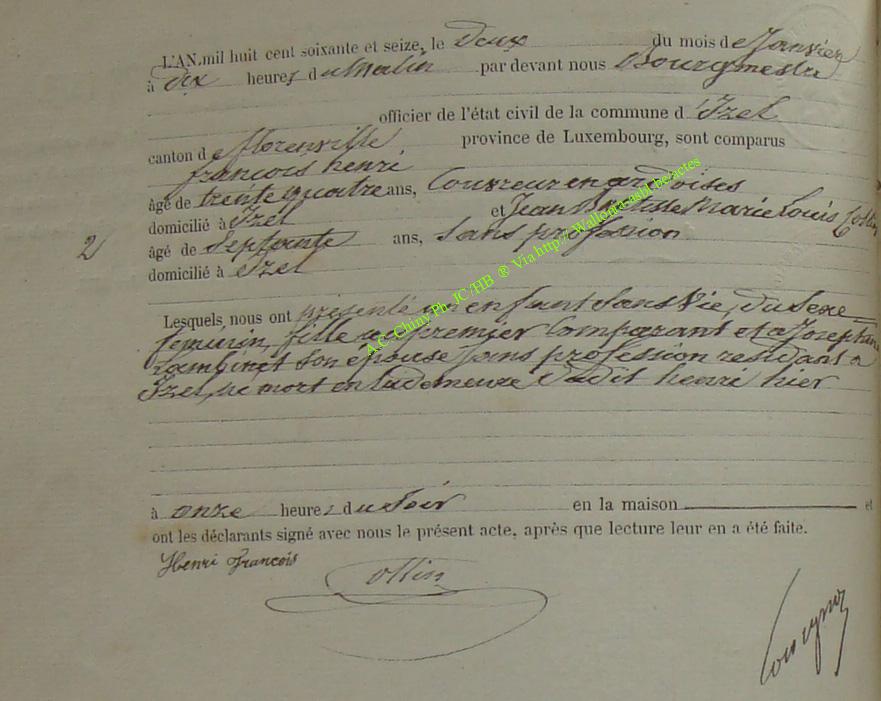 L'AN mil huit cent soixante et seize, le Deux du mois de Janvier
à dix heures du Matin par devant nous Bourgmestre
officier de l'état civil de la commune d'Izel
canton de florenville province de Luxembourg, sont comparus
françois henri
âgé de trente quatre ans, Couvreur en ardoises
domicilié à Izel et Jean Baptiste Marie Louis Collin
2 âgé de Septante ans, Sans profession
domicilié à Izel
Lesquels, nous ont présenté un enfant Sans Vie, du Sexe
feminin, fille du premier Comparant et a Josephine
Lambinet Son épouse Sans profession residant a
Izel, né mort en la demeure dudit henri hier
à onze heures du Soir en la maison et
ont les déclarants signé avec nous le présent acte, après que lecture leur en a été faite.
Henri François
Collin
A.C. Chiny Ph. JC/HB ® Via http://Wallonia-asbl.be/actes